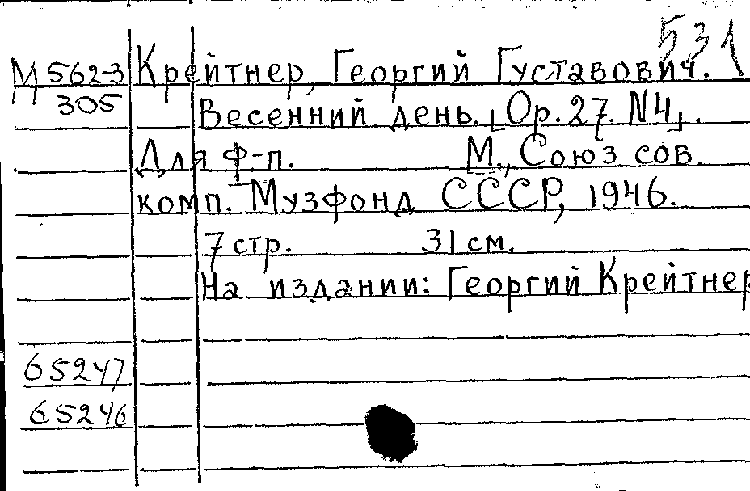 531
М 562-3 Крейтнер, Георгий Густавович.
305 Весенний день. [Op. 27. N4].
Для ф-п. М., Союз сов.
комп. Музфонд СССР, 1946.
7 стр. 31 см.
На издании: Георгий Крейтнер
65247
65246